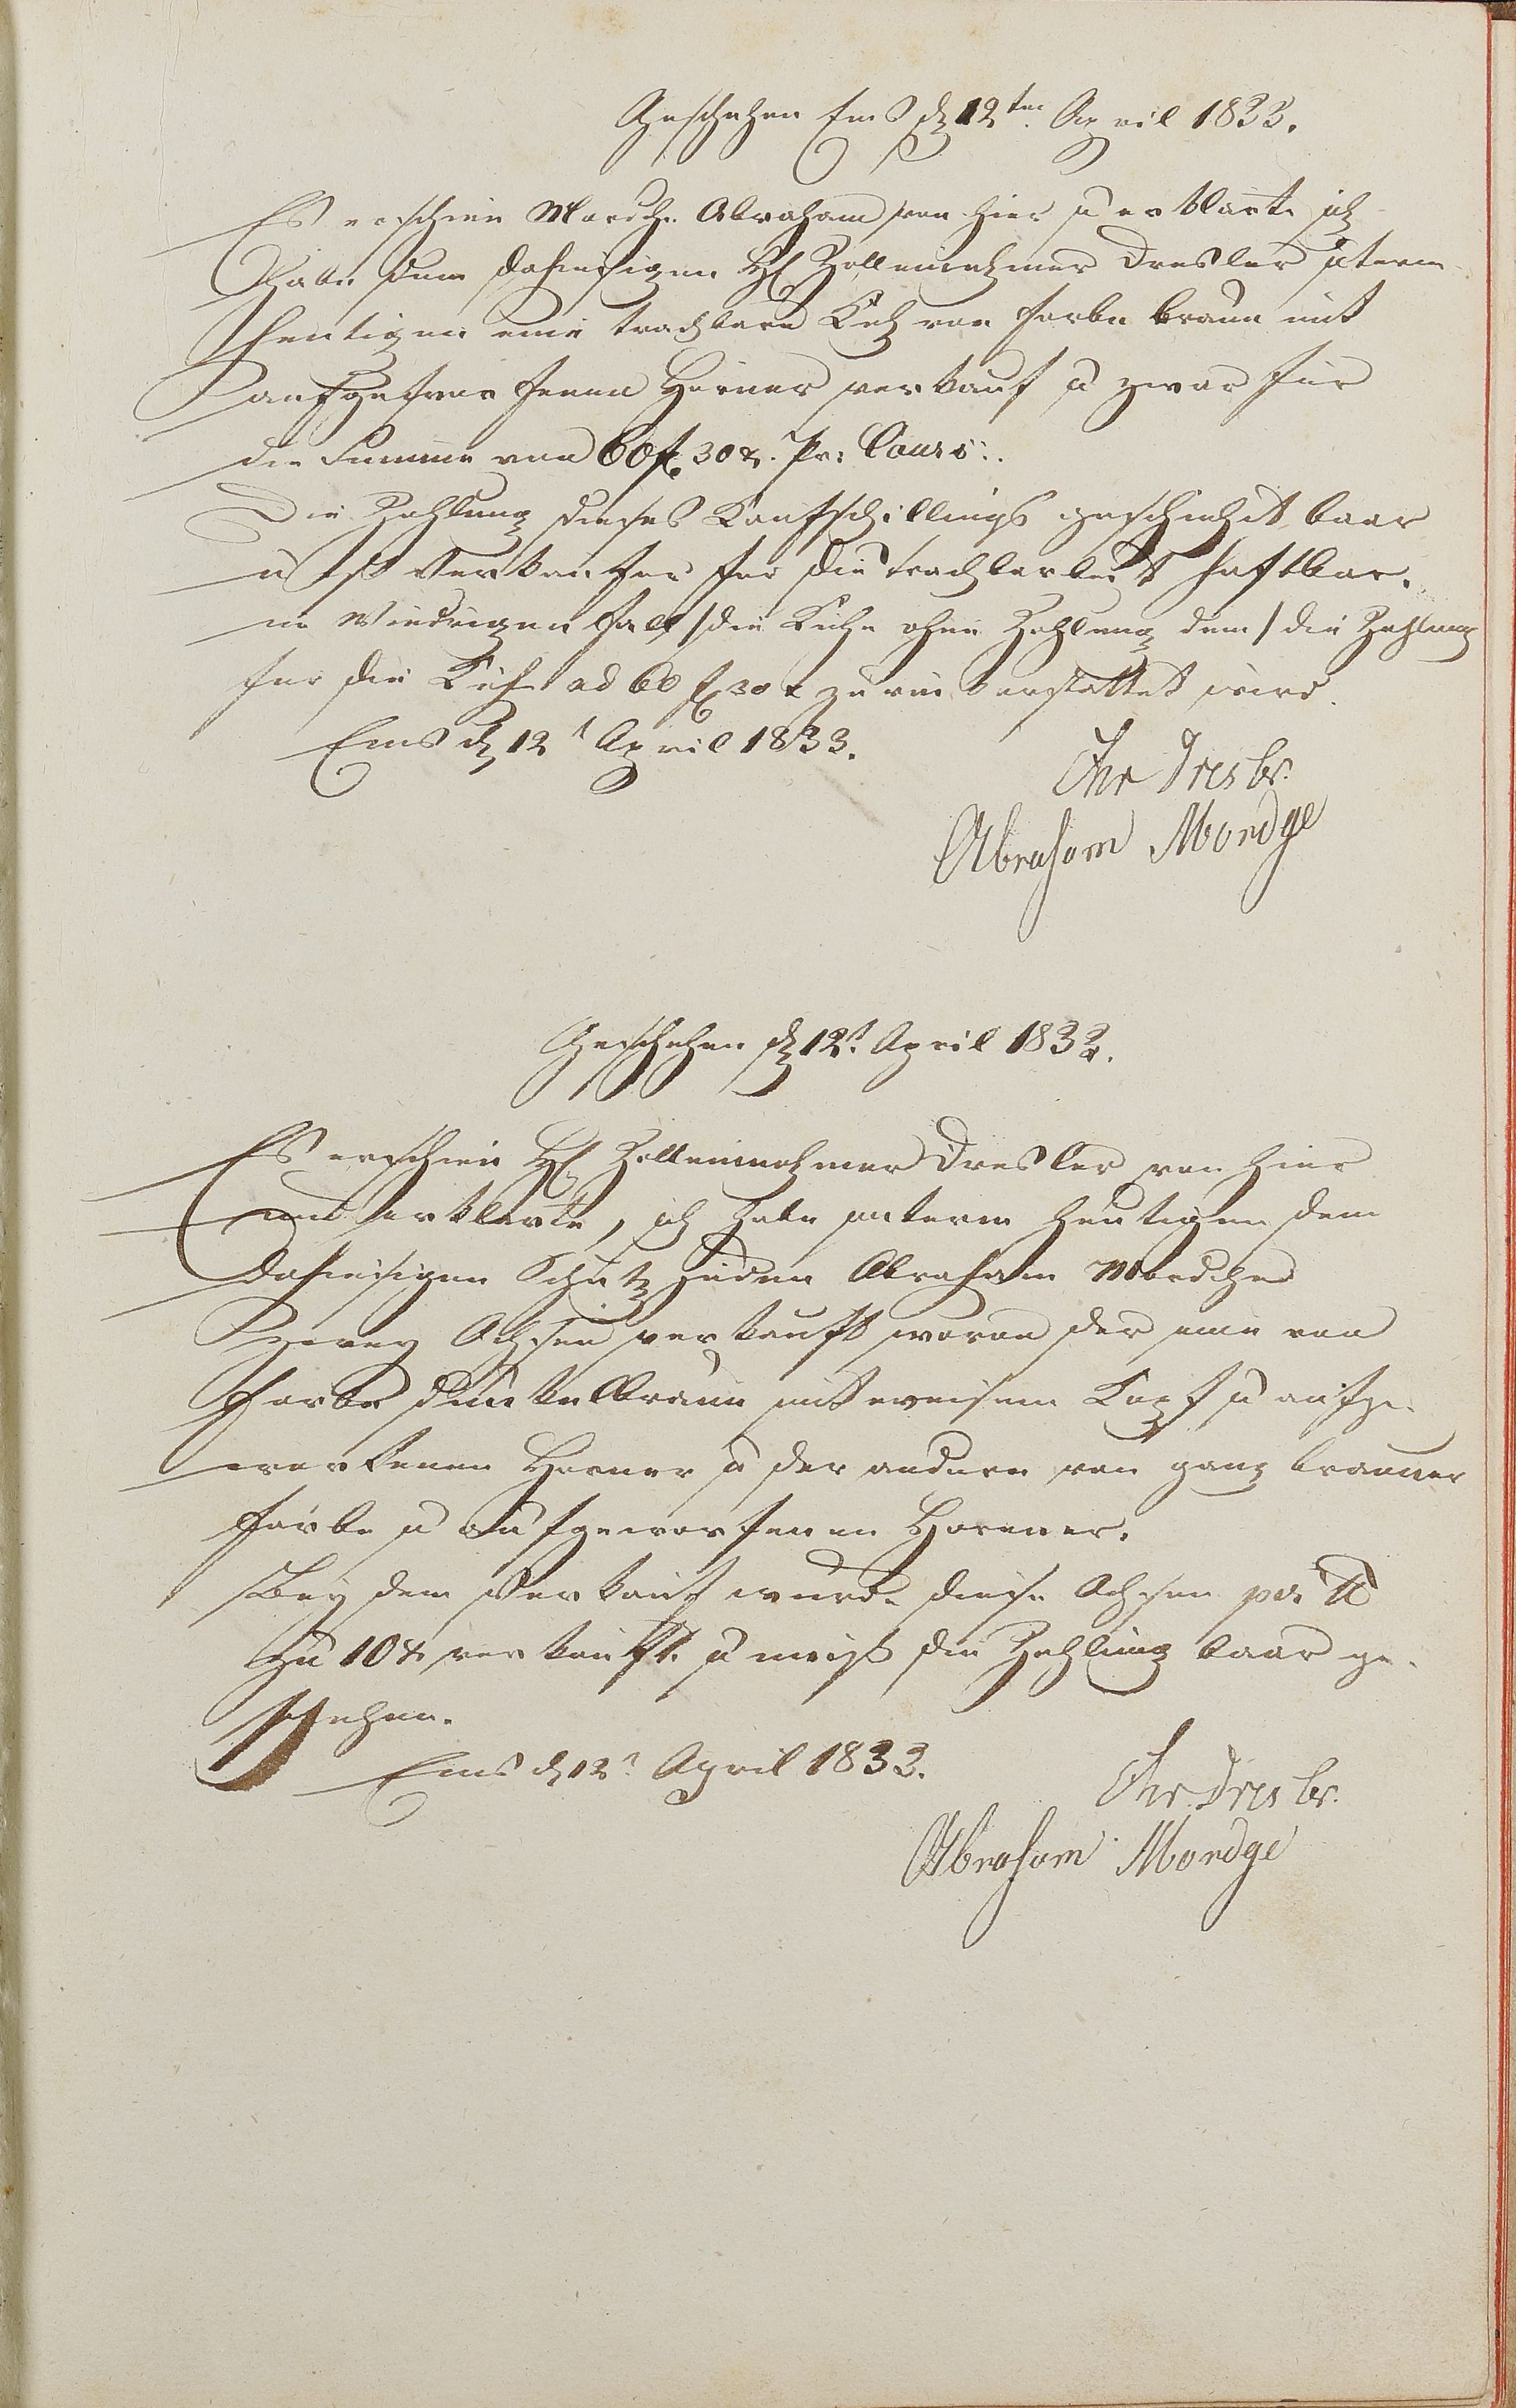 Geschehen Ems d 12ten April 1833.
Es erschien Mordch. Abraham von hier u erklärte ich
Habe dem dahiesigen H Zolleinnehmer Dresler unterm
heutigen eine trachbare Kuh von Farbe braun mit
aufgeworfenen Hörner verkauf u zwar für
die Summe von 60 f 30 x. Pr: Cours:.
Die Zahlung dieses Kaufschillings geschiehet baar
u ist Verkaufer für die trachbarkeit haftbar.
im Wiedrigen Fall /die Kuhe ohne Zahlung dem/ die Zahlung
für die Kuh ad 60 f 30 x zurückerstattet wird.
Ems d 12t April 1833.
Chr Dresler
Abraham Mordge
Geschehen d 12t. April 1833.
Es erschien H Zolleinnehmer Dresler von hier
und erklarte, ich habe unterm heutigen dem
dahiesigen Schutz Juden Abraham Mordche
Zwey Ochsen verkauft wovon der eine von
Farbe dunkelbraun mit weisem Kopf u aufge-
worfenen Horner u der andere von ganz brauner
Farbe u aufgeworfenen Horner.
Bey dem Verkauf wurde diese Ochsen per ℔
zu 10 x verkauft. u muß die Zahlung baar ge-
schehen.
Ems d 12t April 1833.
Chr Dresler
Abraham Mordge